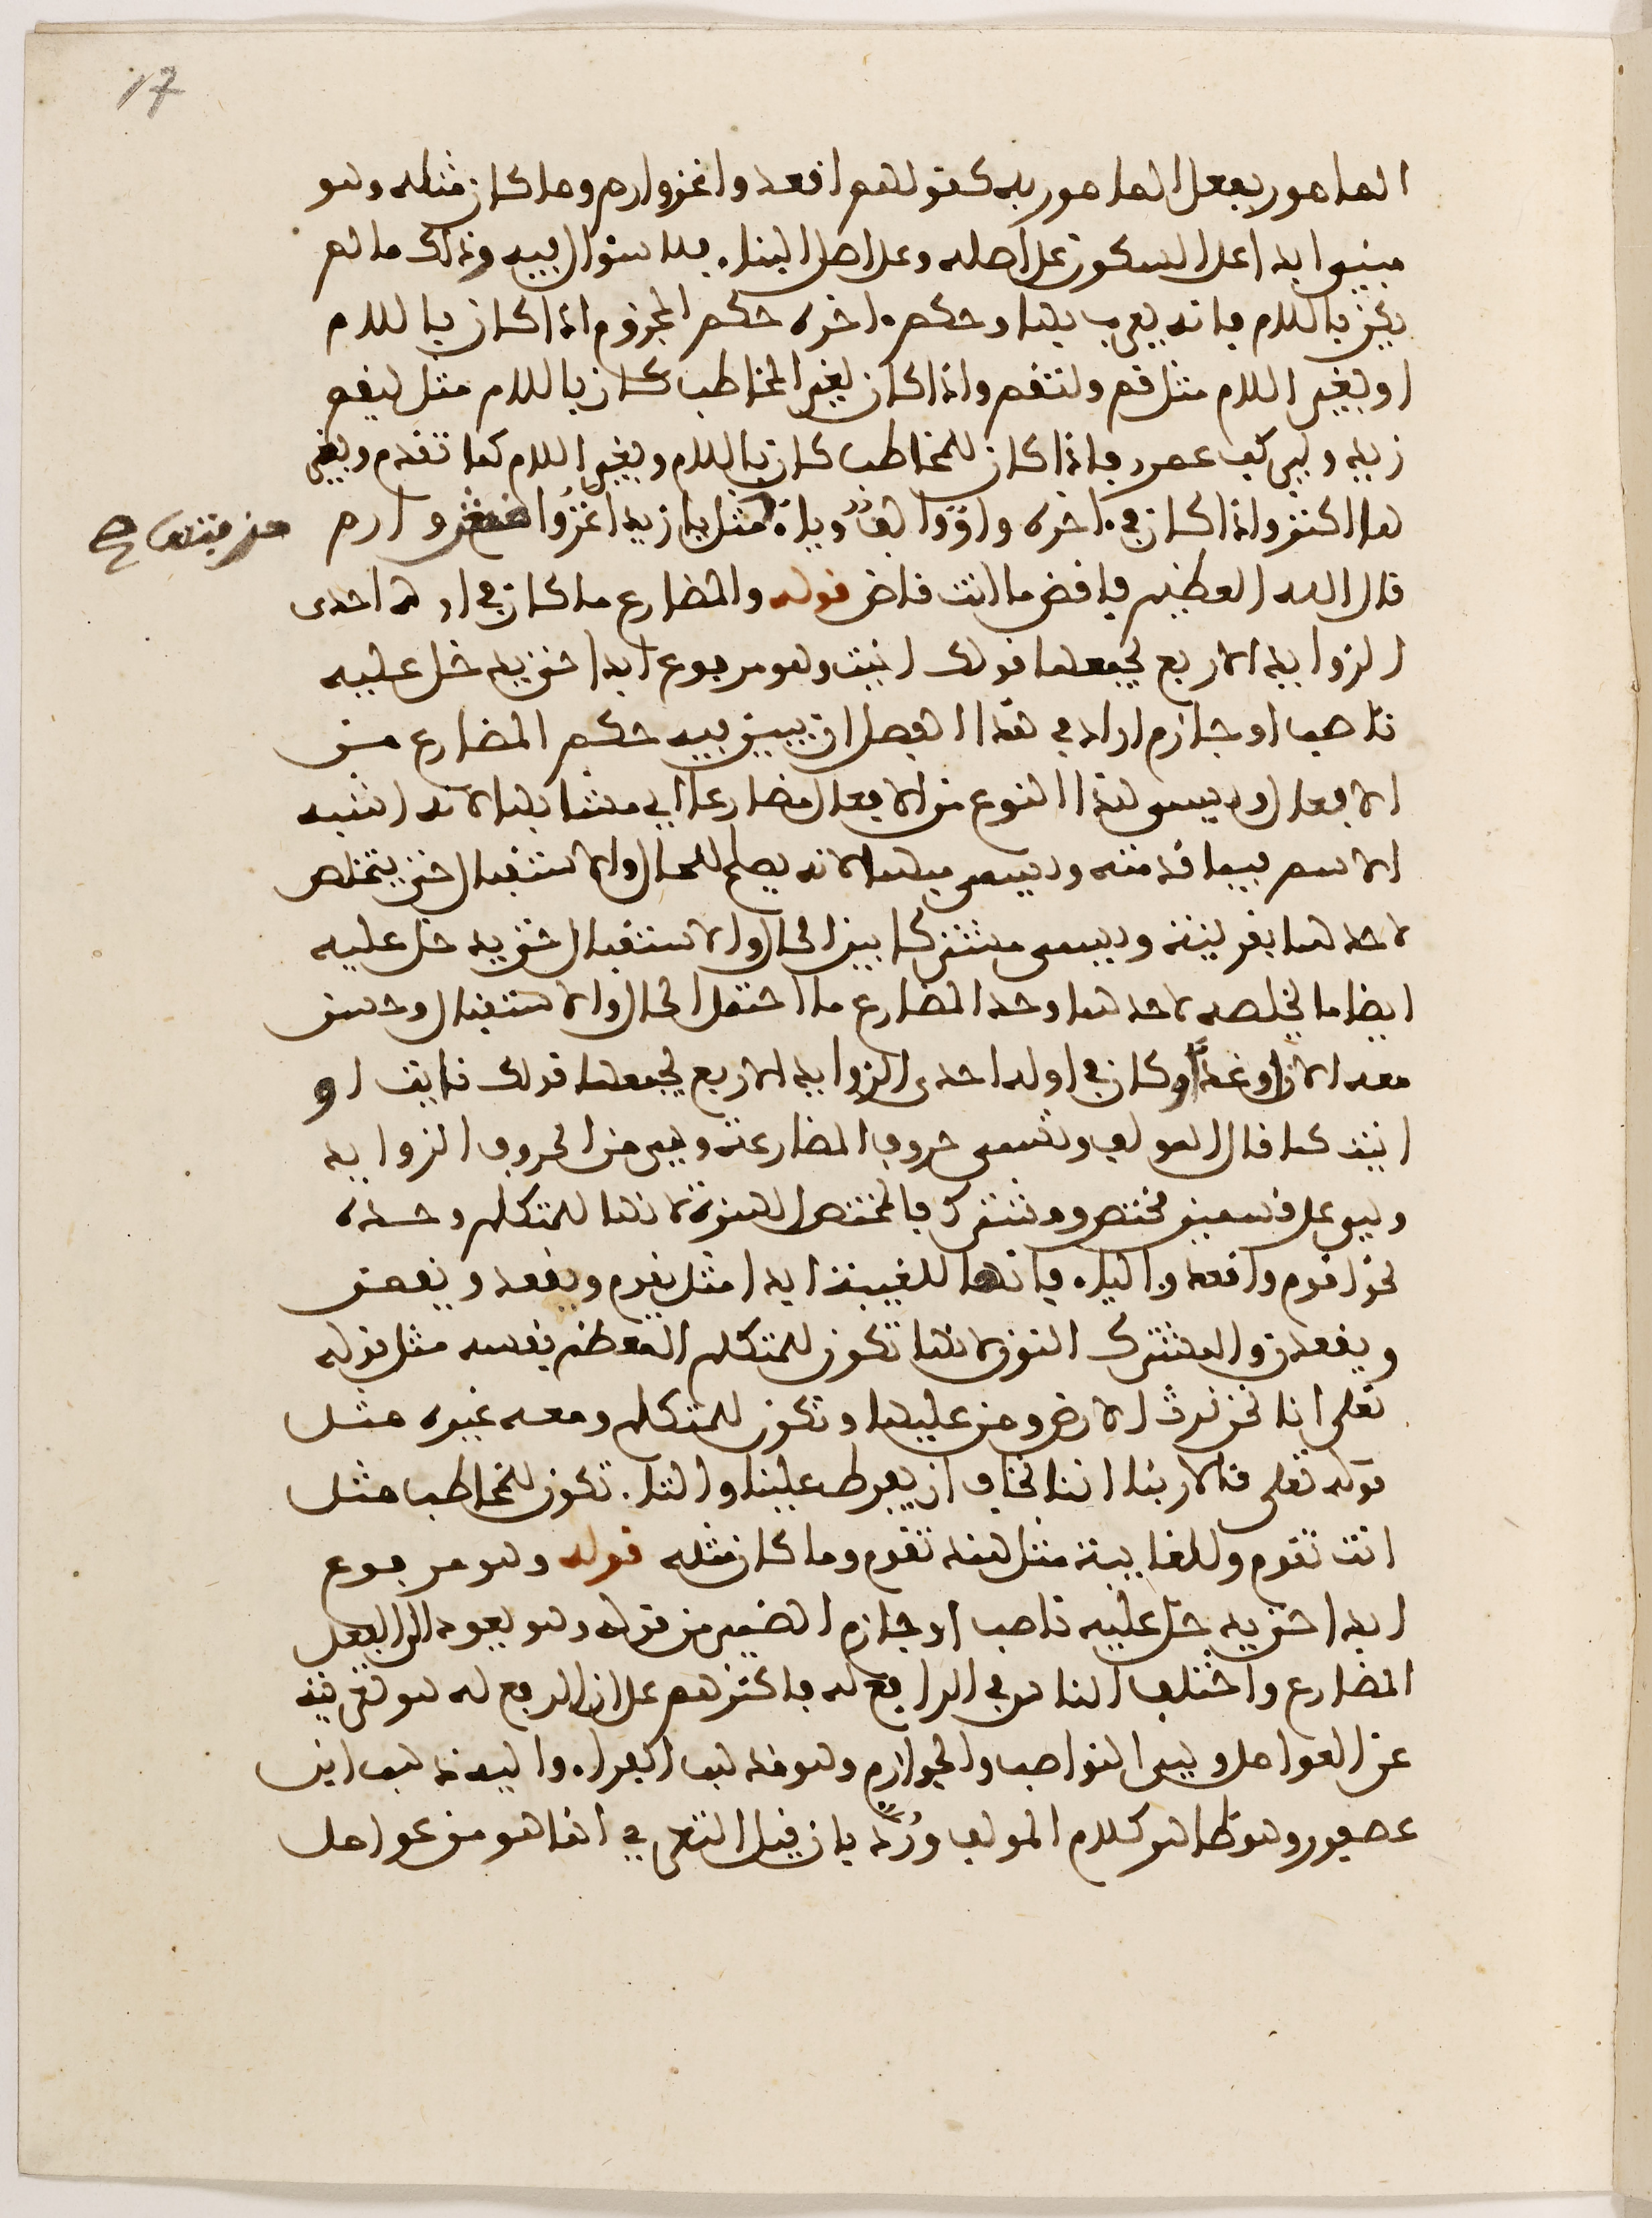 17
المامور بفعل المامور به كقولهم اقعد واغز وارم وما كان مثله وهو
مبني ابدا على السكون على اصله وعلى اصل البناء بلا سؤال فيه وذلك ما لم
يكن باللام فانه يعرب بها وحكم ءاخره حكم المجزوم اذا كان باللام
او بغير اللام مثل قم ولتقم واذا كان لغير المخاطب كان باللام مثل ليقم
زيد وليركب عمرو فاذا كان للمخاطب كان باللام وبغير اللام كما تقدم وبغير
ها اكثر واذا كان في ءاخره واو او الف او ياء مثل يا زيد اغز وارم
قال الله العظيم فاقض ما انت قاض قوله والمضارع ما كان في اوله احدى
الزوايد الاربع يجمعها قولك انيت وهو مرفوع ابدا حتى يدخل عليه
ناصب او جازم اراد في هذا الفصل ان يبين فيه حكم المضارع من
الافعال ويسمى هذا النوع من الافعال مضارعا اي مشابها لانه اشبه
الاسم فيما قدمته ويسمى مبهما لانه يصلح للحال والاستقبال حتى يتخلص
لاحدهما بقرينة ويسمى مشتركا بين الحال والاستقبال حتى يدخل عليه
ايضا ما يخلصه لاحدهما وحد المضارع ما احتمل الحال والاستقبال وحسن
معه الان او غدا وكان في اوله احدى الزوايد الاربع يجمعها قولك نايت او
انيت كما قال المولف وتسمى حروف المضارعة وهي من الحروف الزوايد
وهي على قسمين مختص ومشترك فالمختص الهمزة لانها للمتكلم وحده
نحو اقوم واقعد والياء فانها للغيبة ابدا مثل يقوم ويقعد ويقمن
ويقعدن والمشترك النون لانها تكون للمتكلم المعظم نفسه مثل قوله
تعلى انا نحن نرث الارض ومن عليها وتكون للمتكلم ومعه غيره مثل
قوله تعلى قالا ربنا اننا نخاف ان يفرط علينا والتاء تكون للمخاطب مثل
انت تقوم وللغايبة مثل هند تقوم وما كان مثله قوله وهو مرفوع
ابدا حتى يدخل عليه ناصب او جازم الضمير من قوله وهو يعود الى الفعل
المضارع واختلف الناس في الرافع له فاكثرهم على ان الرافع له هو تعريته
عن العوامل وهي النواصب والجوازم وهو مذهب الفراء واليه ذهب ابن
عصفور وهو ظاهر كلام المولف ورد بان قيل التعري انما هو من عوامل